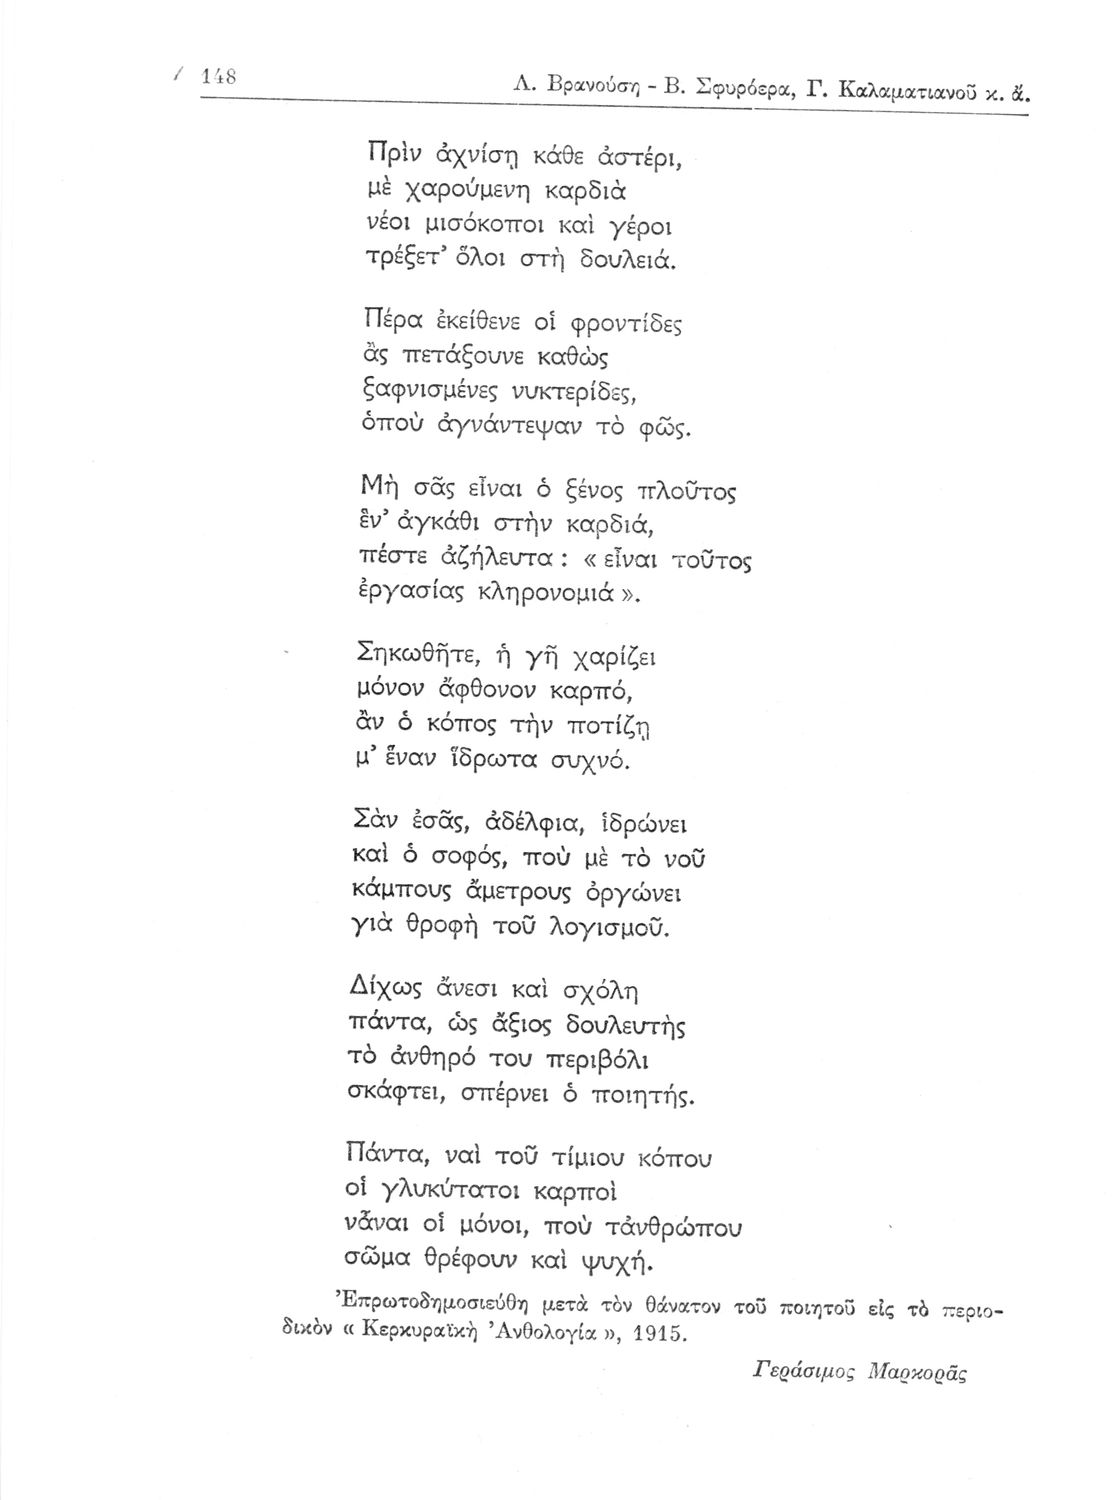 148
Λ. Βρανούση - Β. Σφυρόερα, Γ. Καλαματιανοῦ κ. ἄ.
Πρὶν ἀχνίσῃ κάθε ἀστέρι,
μὲ χαρούμενη καρδιὰ
νέοι μισόκοποι καὶ γέροι
τρέξετ’ ὅλοι στὴ δουλειά.
Πέρα ἐκείθενε οἱ φροντίδες
ἂς πετάξουνε καθὼς
ξαφνισμένες νυκτερίδες,
ὁποὺ ἀγνάντεψαν τὸ φῶς.
Μὴ σᾶς εἶναι ὁ ξένος πλοῦτος
ἓν’ ἀγκάθι στὴν καρδιά,
πέστε ἀζήλευτα : « εἶναι τοῦτος
ἐργασίας κληρονομιά ».
Σηκωθῆτε, ἡ γῆ χαρίζει
μόνον ἄφθονον καρπό,
ἂν ὁ κόπος τὴν ποτίζῃ
μ’ ἕναν ἵδρωτα συχνό.
Σὰν ἐσᾶς, ἀδέλφια, ἱδρώνει
καὶ ὁ σοφός, ποὺ μὲ τὸ νοῦ
κάμπους ἄμετρους ὀργώνει
γιὰ θροφὴ τοῦ λογισμοῦ.
Δίχως ἄνεσι καὶ σχόλη
πάντα, ὡς ἄξιος δουλευτὴς
τὸ ἀνθηρό του περιβόλι
σκάφτει, σπέρνει ὁ ποιητής.
Πάντα, ναὶ τοῦ τίμιου κόπου
οἱ γλυκύτατοι καρποὶ
νἆναι οἱ μόνοι, ποὺ τἀνθρώπου
σῶμα θρέφουν καὶ ψυχή.
Ἐπρωτοδημοσιεύθη μετὰ τὸν θάνατον τοῦ ποιητοῦ εἰς τὸ περιο-
δικὸν « Κερκυραϊκὴ Ἀνθολογία », 1915.
Γεράσιμος Μαρκορᾶς